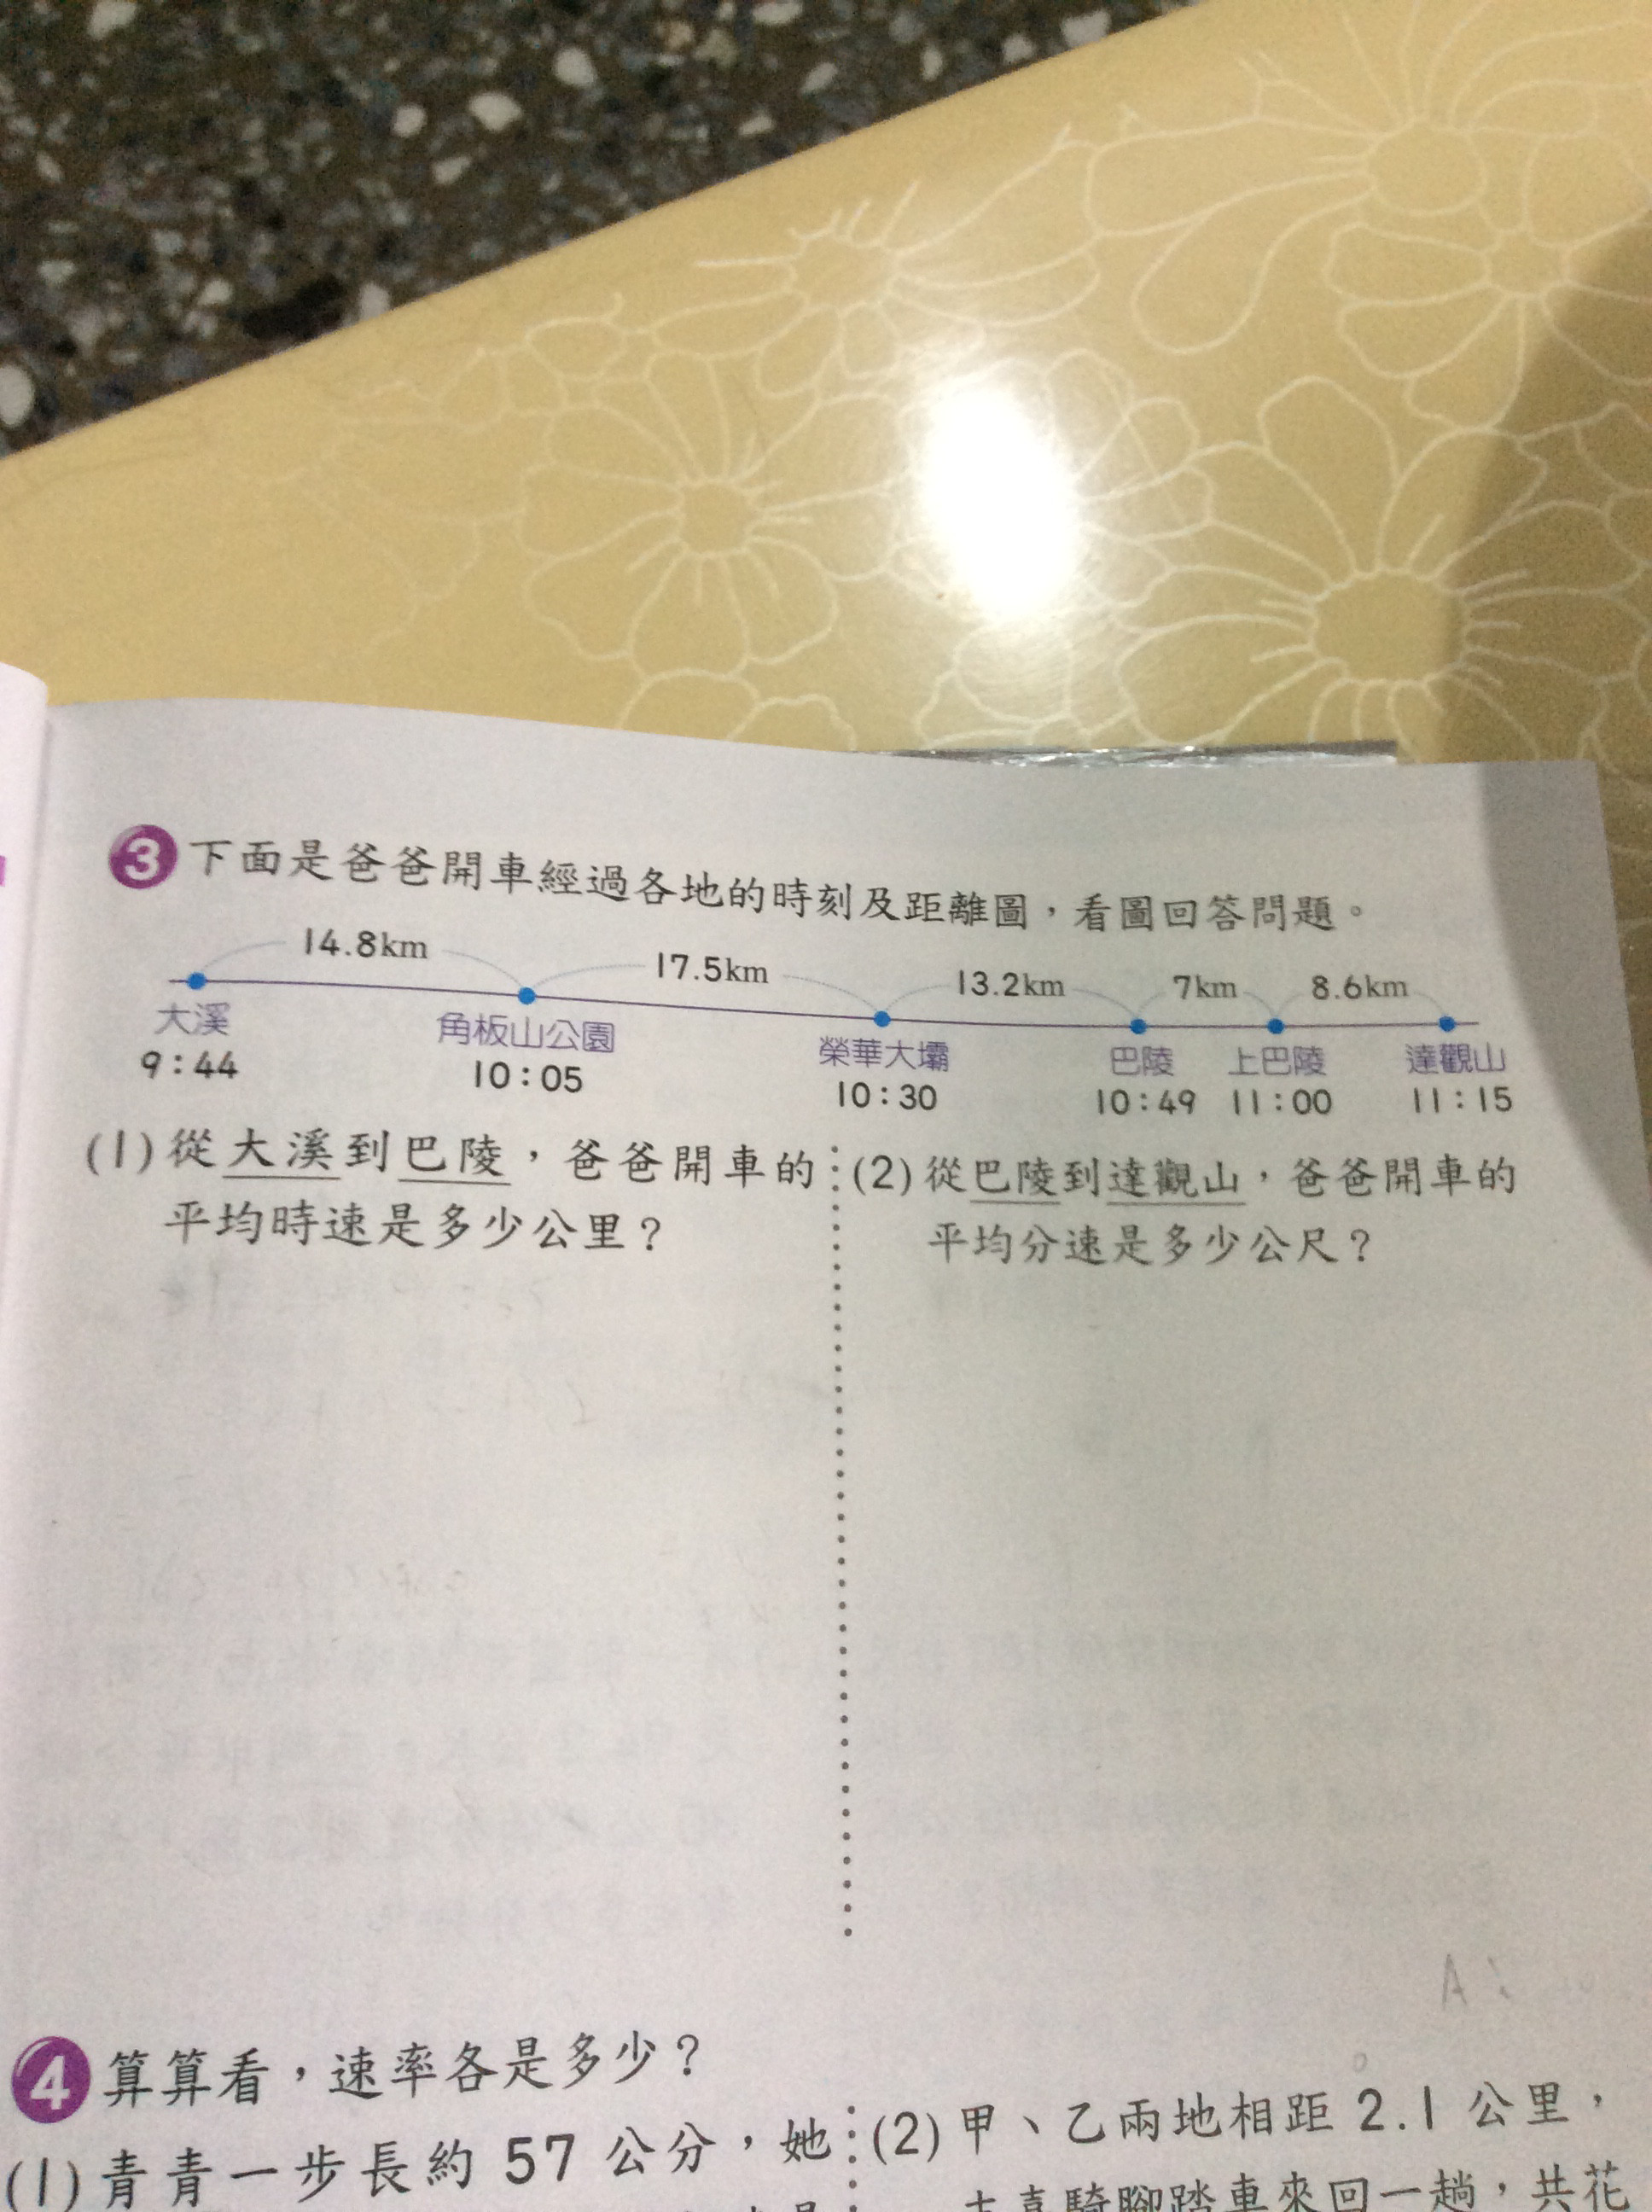 3 下面是爸爸開車經過各地的時刻及距離圖，看圖回答問題。
14.8km 17.5km 13.2km 7km 8.6km
大溪 角板山公園 榮華大壩 巴陵 上巴陵 達觀山
9:44 10:05 10:30 10:49 11:00 11:15
(1)從大溪到巴陵，爸爸開車的
平均時速是多少公里？
(2)從巴陵到達觀山，爸爸開車的
平均分速是多少公尺？
A:
4 算算看，速率各是多少？
(1)青青一步長約 57 公分，她
(2)甲、乙兩地相距 2.1 公里，
騎腳踏車來回一趟，共花